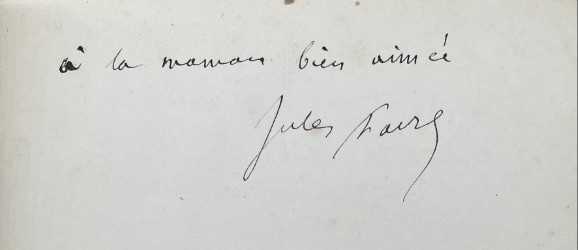 à la maman bien aimée
Jules Favre